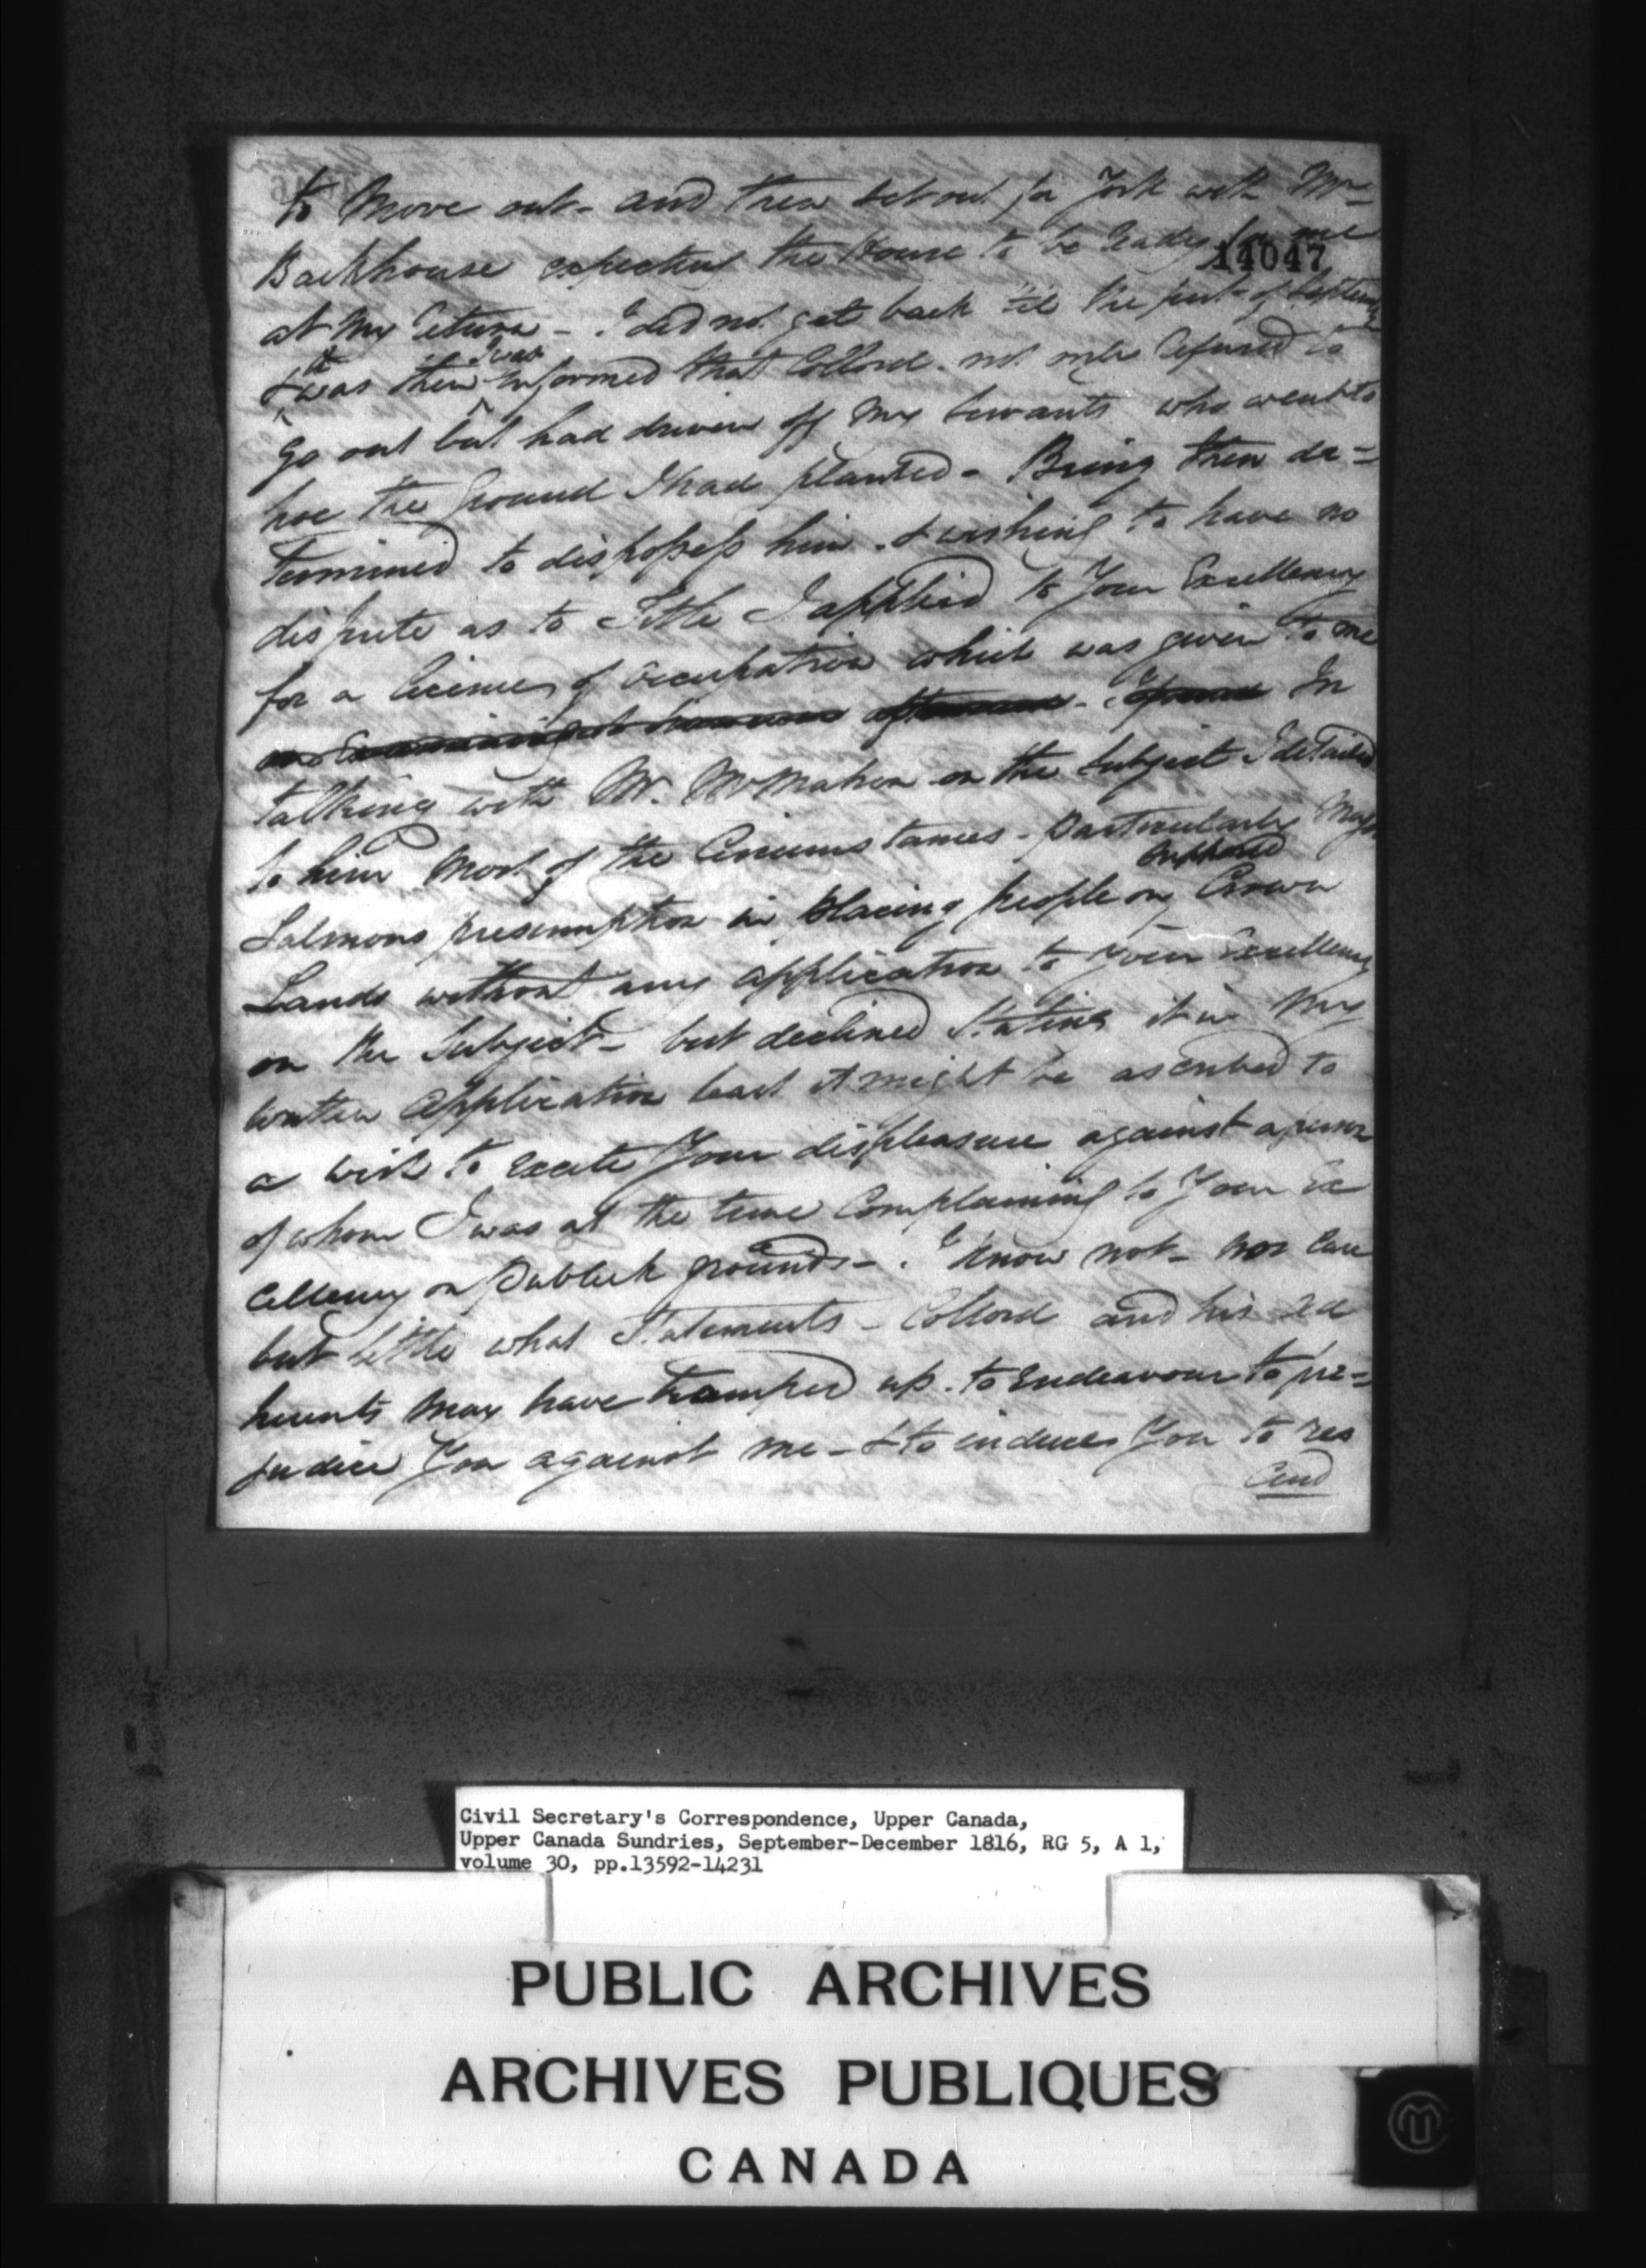 to Move out - and then set out for York with Mr=
Backhouse expecting the House to be ready for me
14047
at my return - I did not get back 'til the first of September
& it was then I was informed that Collord not only refused to
go out but had driven off my servants who went to
hoe the ground I had planted - Being then de=
termined to dispossess him & wishing to have no
dispute as to Title I applied to Your Excellency
for a licence of occupation which was given to me
In
talking with Mr. McMahon on the subject I detailed
to him most of the Circumstances - particularly Major
Salmons presumption in placing people on supposed Crown
Lands without any application to Your Excellency
on the Subject - but declined stating it in my
written application least it might be ascribed to
a wish to excite Your displeasure against a person
of whom I was at the time Complaining to Your Ex
cellency on Publick grounds - I know not - nor care
but little what Statements - Collord and his ad
herents may have trumped up to Endeavour to pre=
judice You against me - & to induce You to res
cind
Civil Secretary's Correspondence, Upper Canada,
Upper Canada Sundries, September-December 1816, RG 5, A 1,
volume 30, pp.13592-14231
PUBLIC ARCHIVES
ARCHIVES PUBLIQUES
CANADA